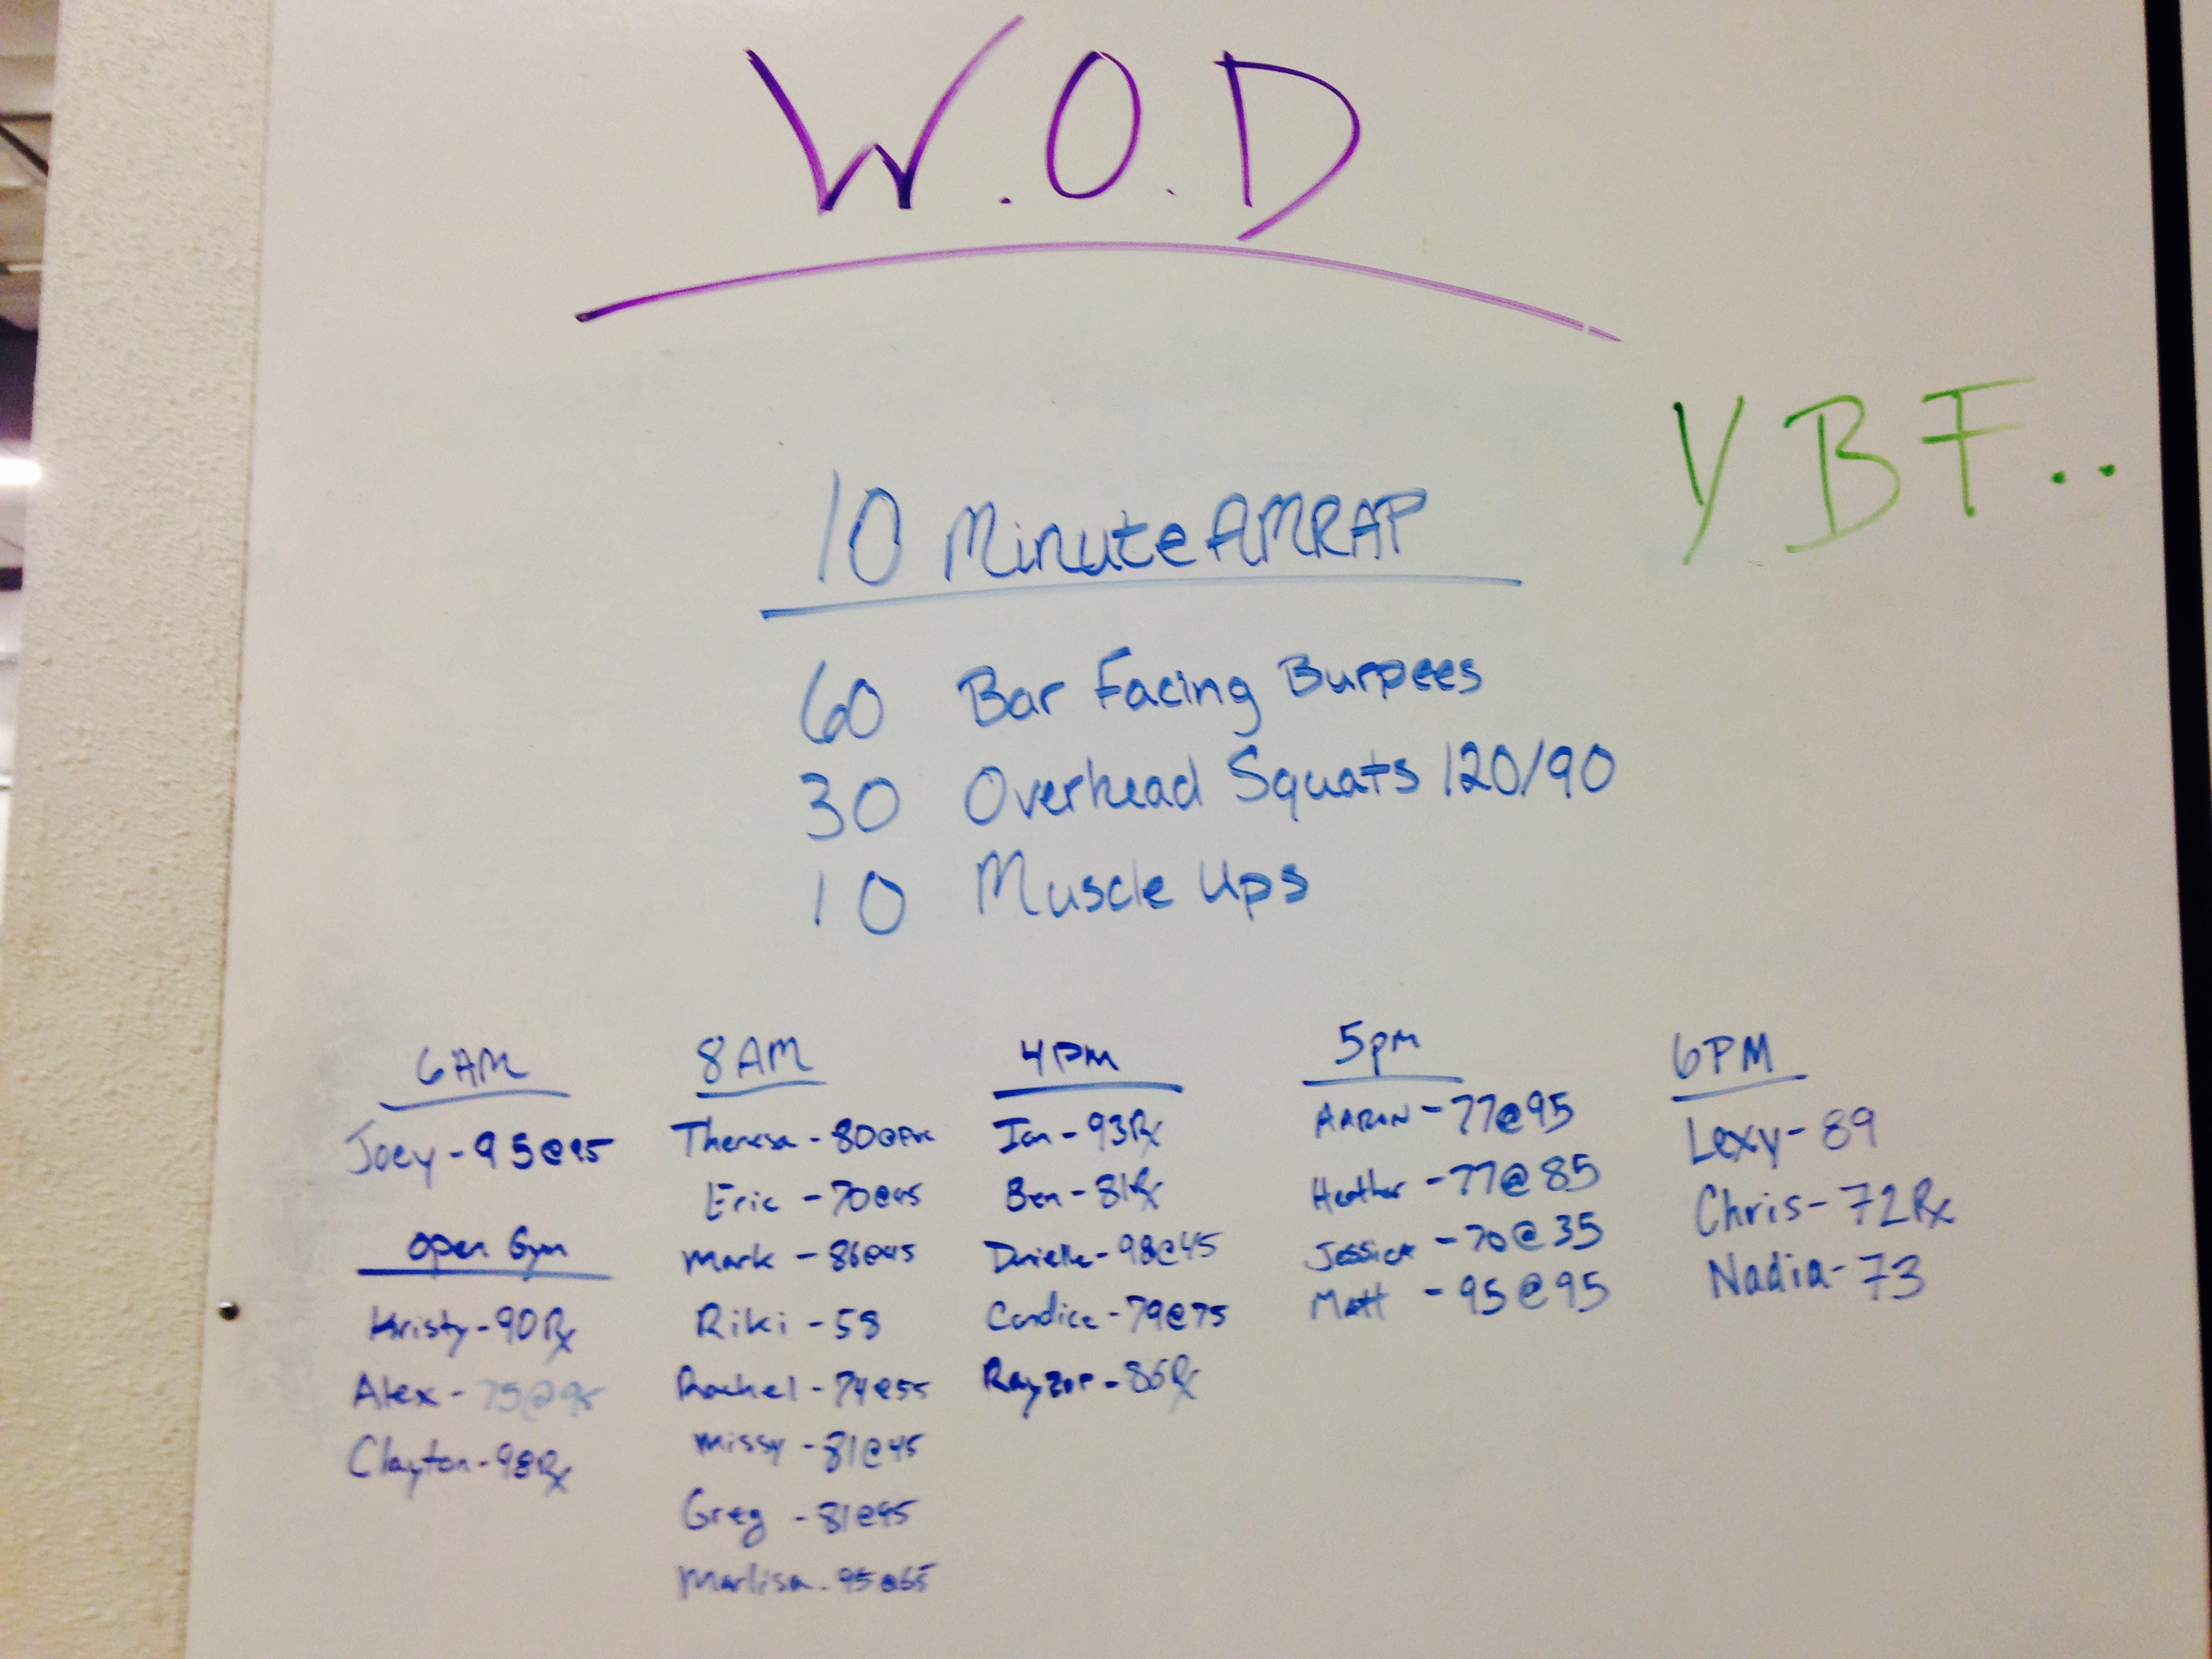 W.O.D
YBF..
10 Minute AMRAP
60 Bar Facing Burpees
30 Overhead Squats 120/90
10 Muscle Ups
6AM
Joey - 95@95
Open Gym
Kristy - 90Rx
Alex - 75@95
Clayton - 98Rx
8AM
Theresa - 80@
Eric - 70@95
Mark - 86@45
Riki - 58
Rachel - 74@55
Missy - 81@45
Greg - 81@95
Marlisa - 95@65
4PM
Ian - 93Rx
Ben - 81Rx
Danielle - 98@45
Candice - 79@75
Rayzor - 86Rx
5pm
AARON - 77@95
Heather - 77@85
Jessica - 70@35
Matt - 95@95
6PM
Lexy - 89
Chris - 72Rx
Nadia - 73